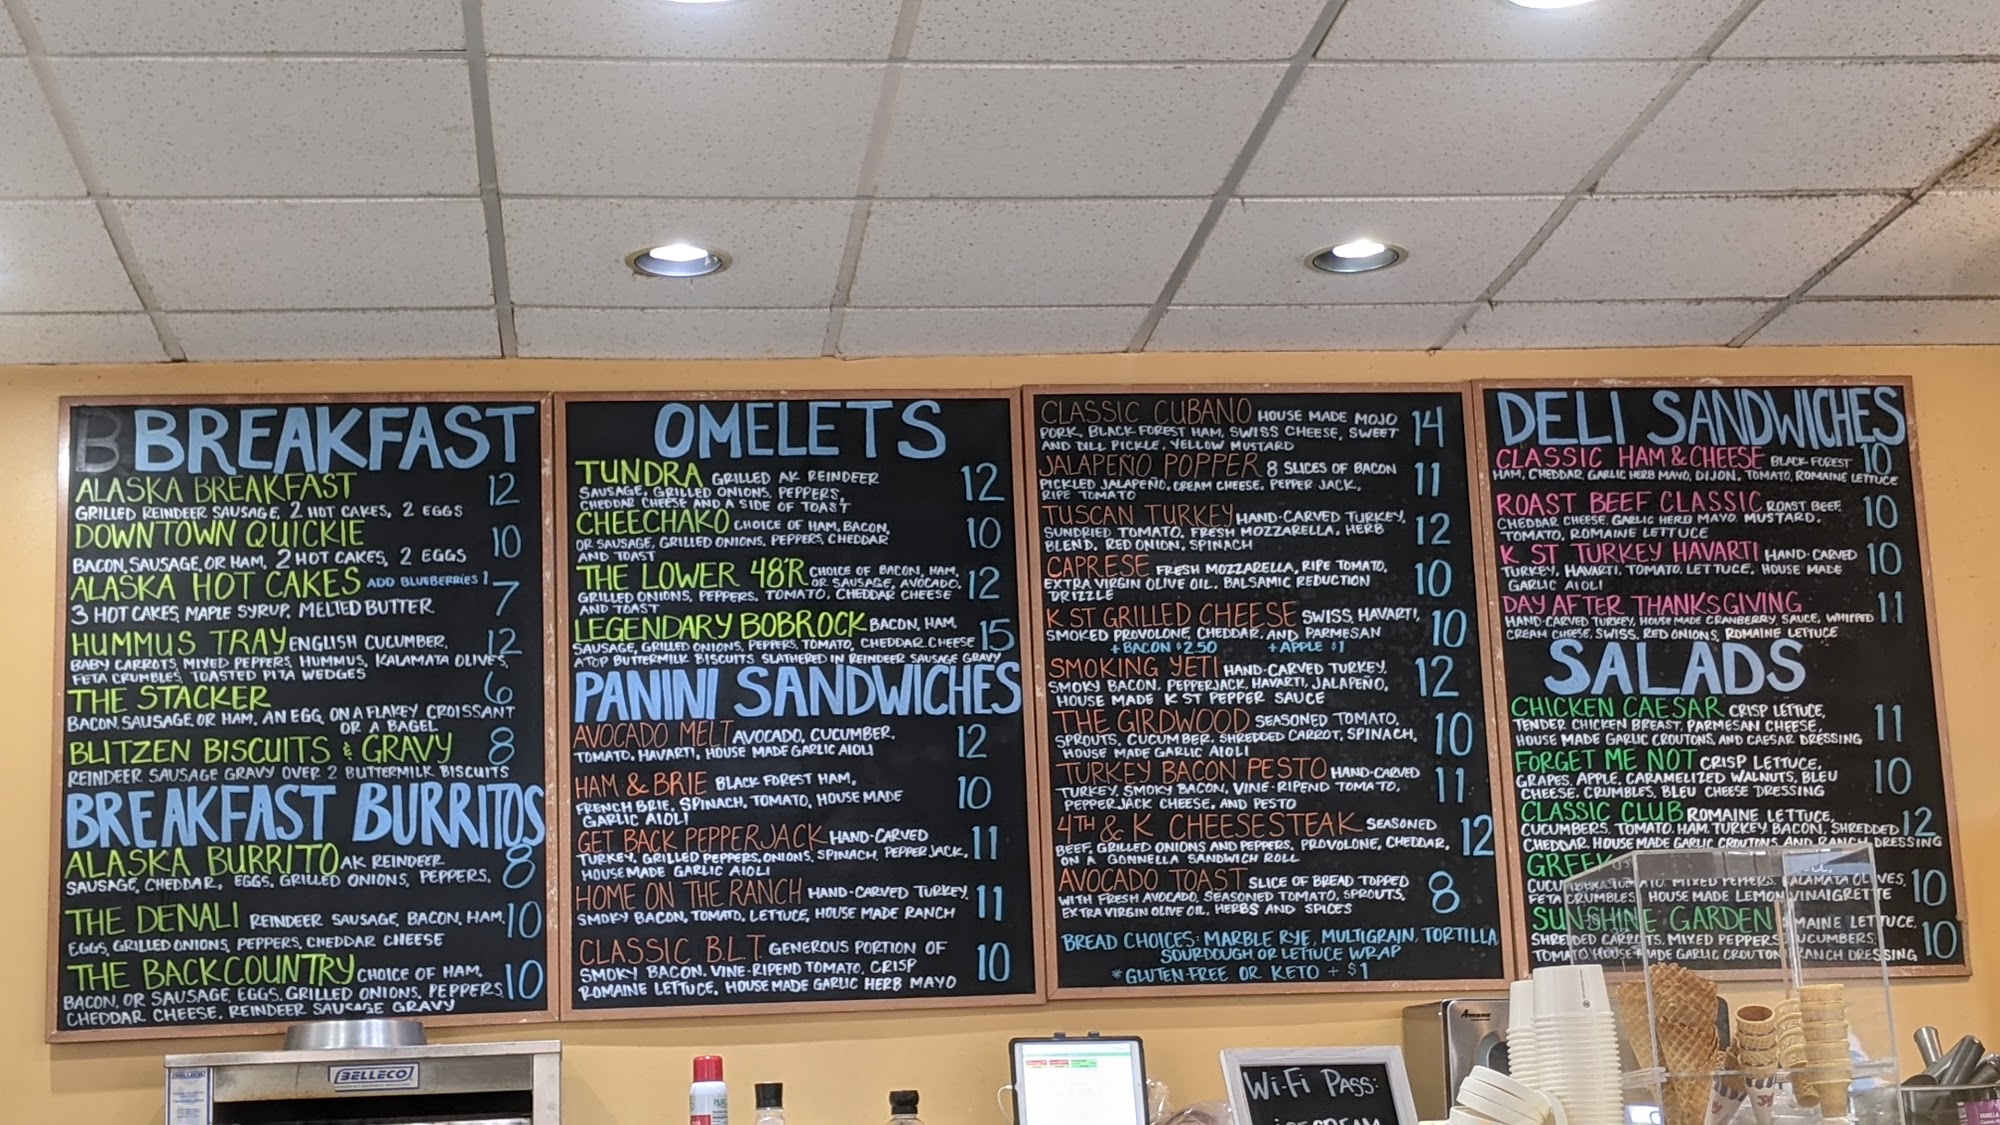 B BREAKFAST
ALASKA BREAKFAST 12
GRILLED REINDEER SAUSAGE, 2 HOT CAKES, 2 EGGS
DOWNTOWN QUICKIE 10
BACON, SAUSAGE, OR HAM, 2 HOT CAKES, 2 EGGS
ALASKA HOT CAKES ADD BLUEBERRIES 1 7
3 HOT CAKES, MAPLE SYRUP, MELTED BUTTER
HUMMUS TRAY ENGLISH CUCUMBER, 12
BABY CARROTS, MIXED PEPPERS, HUMMUS, KALAMATA OLIVES,
FETA CRUMBLES, TOASTED PITA WEDGES
THE STACKER 6
BACON, SAUSAGE, OR HAM, AN EGG, ON A FLAKEY CROISSANT
OR A BAGEL
BLITZEN BISCUITS & GRAVY 8
REINDEER SAUSAGE GRAVY OVER 2 BUTTERMILK BISCUITS
BREAKFAST BURRITOS
ALASKA BURRITO AK REINDEER 8
SAUSAGE, CHEDDAR, EGGS, GRILLED ONIONS, PEPPERS,
THE DENALI REINDEER SAUSAGE, BACON, HAM, 10
EGGS, GRILLED ONIONS, PEPPERS, CHEDDAR CHEESE
THE BACKCOUNTRY CHOICE OF HAM, 10
BACON, OR SAUSAGE, EGGS, GRILLED ONIONS, PEPPERS
CHEDDAR CHEESE, REINDEER SAUSAGE GRAVY
OMELETS
TUNDRA GRILLED AK REINDEER 12
SAUSAGE, GRILLED ONIONS, PEPPERS,
CHEDDAR CHEESE AND A SIDE OF TOAST
CHEECHAKO CHOICE OF HAM, BACON, 10
OR SAUSAGE, GRILLED ONIONS, PEPPERS, CHEDDAR
AND TOAST
THE LOWER 48'R CHOICE OF BACON, HAM, 12
OR SAUSAGE, AVOCADO,
GRILLED ONIONS, PEPPERS, TOMATO, CHEDDAR CHEESE
AND TOAST
LEGENDARY BOBROCK BACON, HAM, 15
SAUSAGE, GRILLED ONIONS, PEPPERS, TOMATO, CHEDDAR CHEESE
ATOP BUTTERMILK BISCUITS SLATHERED IN REINDEER SAUSAGE GRAVY
PANINI SANDWICHES
AVOCADO MELT AVOCADO, CUCUMBER, 12
TOMATO, HAVARTI, HOUSE MADE GARLIC AIOLI
HAM & BRIE BLACK FOREST HAM, 10
FRENCH BRIE, SPINACH, TOMATO, HOUSE MADE
GARLIC AIOLI
GET BACK PEPPERJACK HAND-CARVED 11
TURKEY, GRILLED PEPPERS, ONIONS, SPINACH, PEPPER JACK,
HOUSE MADE GARLIC AIOLI
HOME ON THE RANCH HAND-CARVED TURKEY, 11
SMOKY BACON, TOMATO, LETTUCE, HOUSE MADE RANCH
CLASSIC B.L.T. GENEROUS PORTION OF 10
SMOKY BACON, VINE-RIPEND TOMATO, CRISP
ROMAINE LETTUCE, HOUSE MADE GARLIC HERB MAYO
CLASSIC CUBANO HOUSE MADE MOJO 14
PORK, BLACK FOREST HAM, SWISS CHEESE, SWEET
AND DILL PICKLE, YELLOW MUSTARD
JALAPEÑO POPPER 8 SLICES OF BACON 11
PICKLED JALAPEÑO, CREAM CHEESE, PEPPER JACK,
RIPE TOMATO
TUSCAN TURKEY HAND-CARVED TURKEY, 12
SUNDRIED TOMATO, FRESH MOZZARELLA, HERB
BLEND, RED ONION, SPINACH
CAPRESE FRESH MOZZARELLA, RIPE TOMATO, 10
EXTRA VIRGIN OLIVE OIL, BALSAMIC REDUCTION
DRIZZLE
K ST GRILLED CHEESE SWISS, HAVARTI, 10
SMOKED PROVOLONE, CHEDDAR, AND PARMESAN
+ BACON $2.50 + APPLE $1
SMOKING YETI HAND-CARVED TURKEY, 12
SMOKY BACON, PEPPERJACK, HAVARTI, JALAPEÑO,
HOUSE MADE K ST PEPPER SAUCE
THE GIRDWOOD SEASONED TOMATO, 10
SPROUTS, CUCUMBER, SHREDDED CARROT, SPINACH,
HOUSE MADE GARLIC AIOLI
TURKEY BACON PESTO HAND-CARVED 11
TURKEY, SMOKY BACON, VINE-RIPEND TOMATO,
PEPPER JACK CHEESE, AND PESTO
4TH & K CHEESESTEAK SEASONED 12
BEEF, GRILLED ONIONS AND PEPPERS, PROVOLONE, CHEDDAR,
ON A GONNELLA SANDWICH ROLL
AVOCADO TOAST SLICE OF BREAD TOPPED 8
WITH FRESH AVOCADO, SEASONED TOMATO, SPROUTS,
EXTRA VIRGIN OLIVE OIL, HERBS AND SPICES
BREAD CHOICES: MARBLE RYE, MULTIGRAIN, TORTILLA
SOURDOUGH OR LETTUCE WRAP
*GLUTEN-FREE OR KETO + $1
DELI SANDWICHES
CLASSIC HAM & CHEESE BLACK FOREST 10
HAM, CHEDDAR, GARLIC HERB MAYO, DIJON, TOMATO, ROMAINE LETTUCE
ROAST BEEF CLASSIC ROAST BEEF, 10
CHEDDAR CHEESE, GARLIC HERB MAYO, MUSTARD,
TOMATO, ROMAINE LETTUCE
K ST TURKEY HAVARTI HAND-CARVED 10
TURKEY, HAVARTI, TOMATO, LETTUCE, HOUSE MADE
GARLIC AIOLI
DAY AFTER THANKSGIVING 11
HAND-CARVED TURKEY, HOUSE MADE CRANBERRY SAUCE, WHIPPED
CREAM CHEESE, SWISS, RED ONIONS, ROMAINE LETTUCE
SALADS
CHICKEN CAESAR CRISP LETTUCE, 11
TENDER CHICKEN BREAST, PARMESAN CHEESE,
HOUSE MADE GARLIC CROUTONS, AND CAESAR DRESSING
FORGET ME NOT CRISP LETTUCE, 10
GRAPES, APPLE, CARAMELIZED WALNUTS, BLEU
CHEESE CRUMBLES, BLEU CHEESE DRESSING
CLASSIC CLUB ROMAINE LETTUCE, 12
CUCUMBERS, TOMATO, HAM, TURKEY, BACON, SHREDDED
CHEDDAR, HOUSE MADE GARLIC CROUTONS AND RANCH DRESSING
GREEK 10
TOMATO, MIXED PEPPERS, KALAMATA OLIVES,
FETA CRUMBLES, HOUSE MADE LEMON VINAIGRETTE
SUNSHINE GARDEN LETTUCE, 10
SHREDDED CARROTS, MIXED PEPPERS, CUCUMBERS,
TOMATO, HOUSE MADE GARLIC CROUTON RANCH DRESSING
BELLECO
Amana
Wi-Fi Pass: